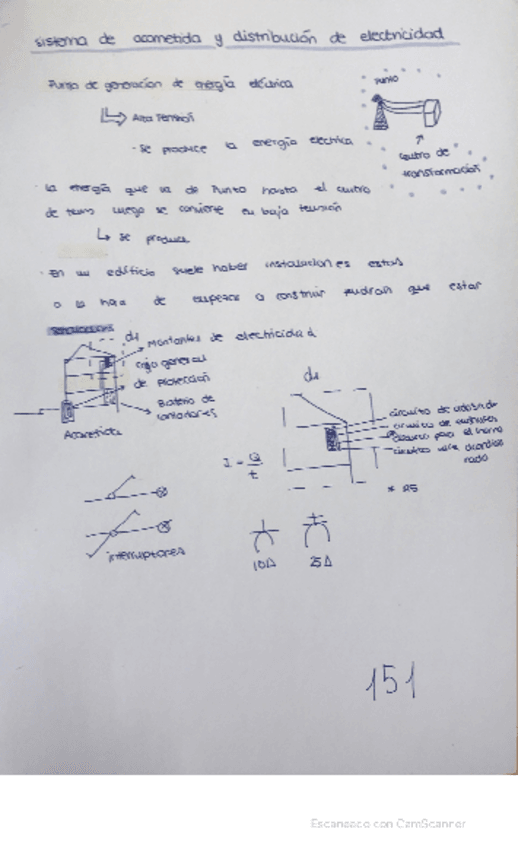 sistema de acometida y distribución de electricidad
Punto de generación de energía eléctrica
Punto
Alta Tensión
· Se produce la energía electrica
centro de
transformación
· La energía que va de Punto hasta el centro
de trans luego se convierte en baja tensión
↳ se produce
· En un edificio suele haber instalaciones estas
a la hora de empezar a construir tendran que estar
d1
Montantes de electricidad
caja general
de Protección
Batería de
contadores
Acometida
d1
circuito para el horno
I = Q/t
* 25
interruptores
10A
25A
151
Escaneado con CamScanner